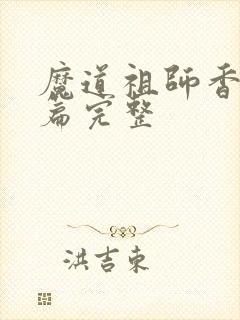 魔道祖師香
篇完整
洪吉東